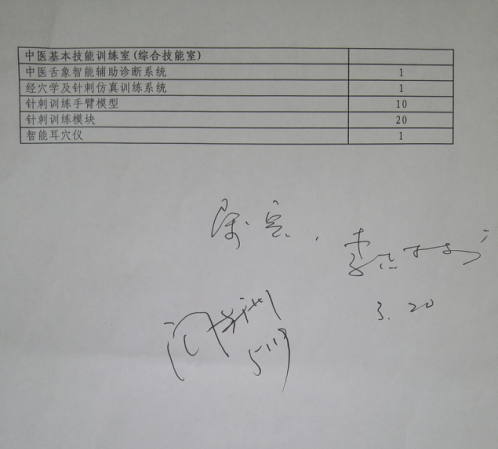 中医基本技能训练室(综合技能室)
中医舌象智能辅助诊断系统 1
经穴学及针刺仿真训练系统 1
针刺训练手臂模型 10
针刺训练模块 20
智能耳穴仪 1
属实,
3.20